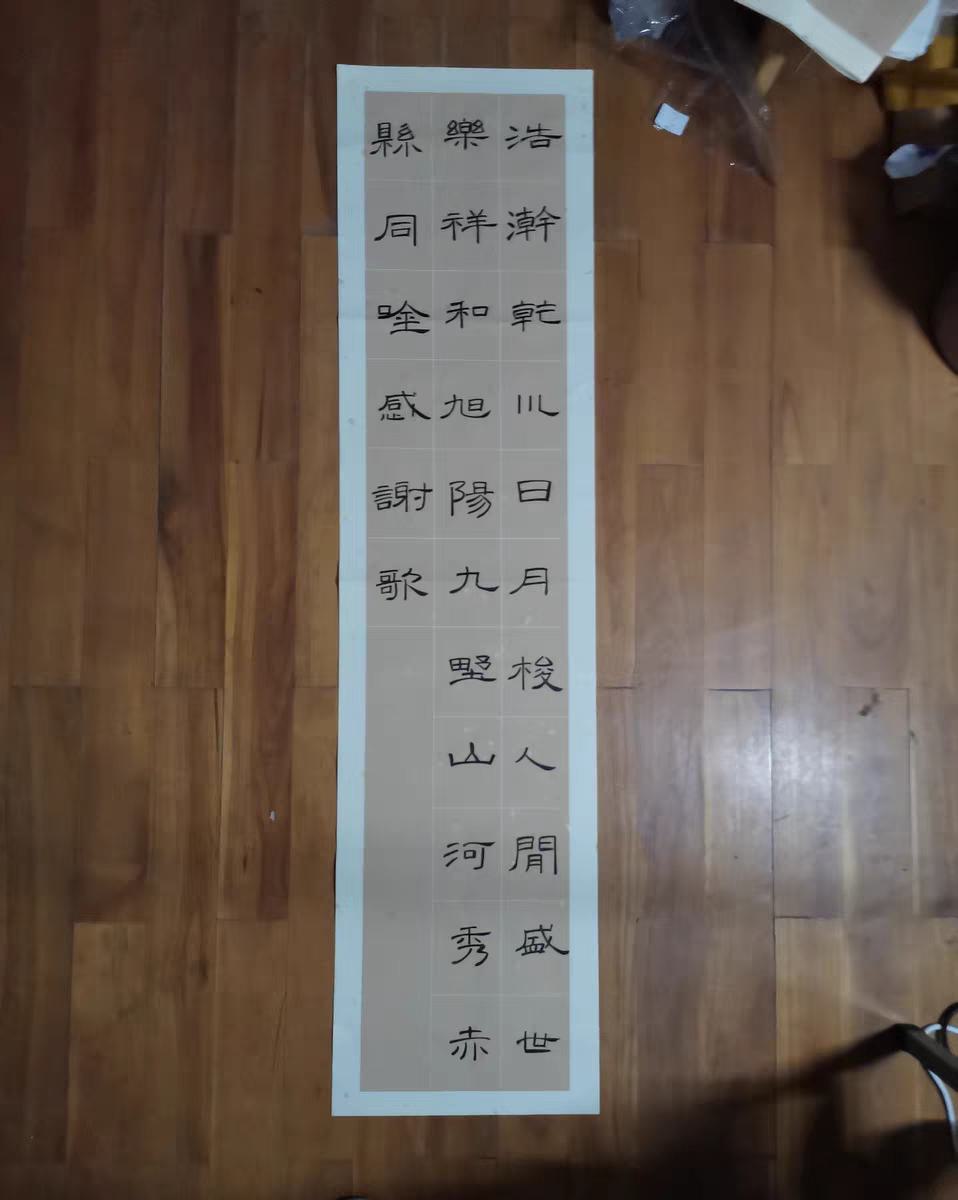 浩瀚乾川日月梭人閒盛世
樂祥和旭陽九墅山河秀赤
縣同唫感謝歌